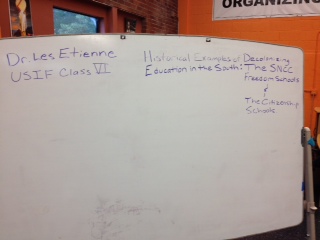 ORGANIZING
Dr. Les Etienne
USIF Class VI
Historical Examples of Decolonizing
Education in the South: The SNCC
Freedom Schools
&
The Citizenship
Schools